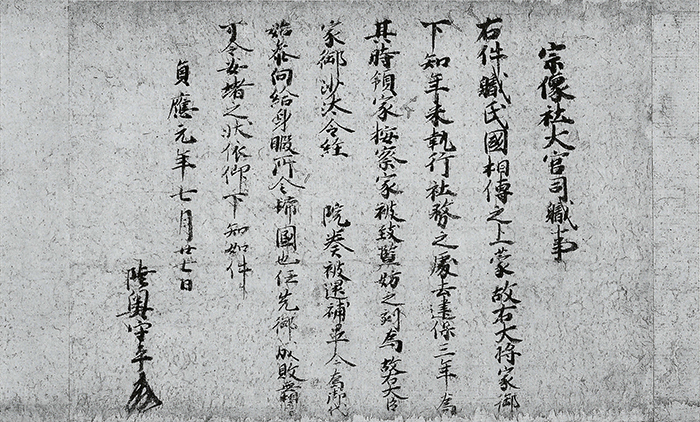 宗像社大宮司職事
右件職氏國相傳之上蒙故右大将家御
下知年来執行社務之處去建保三年為
其時領家按察家被致監妨之刻為故右大臣
家御沙汰令経　院奏被還補畢今為御代
始参向給身暇所令歸國也任先御成敗無
可令安堵之状依仰下知如件
貞應元年七月廿七日
陸奥守平